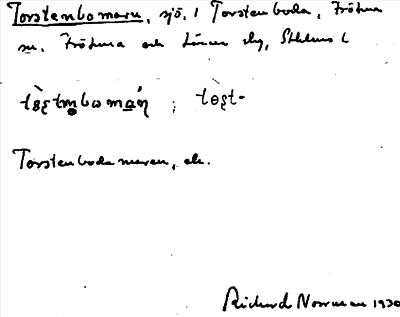 Torstenbomaren, sjö, i Torstenboda, Frötuna
sn. Frötuna och Länna skg, Sthlms l
tɷʂtn̥bωmàn̥ ; tɷʂt-
Torstenboda maren, ek.
Richard Norrman 1930